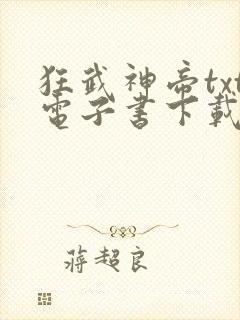 狂武神帝txt
電子書下載
蔣超良